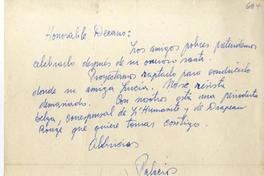 604
Honorable Decano:
Los amigos pobres pretendemos
celebrarlo después de su onceavo
Proyectamos raptarlo para conducirlo
donde su amiga Lucía. No se resista
demasiado. Con nosotros está una periodista
belga, corresponsal de L'Humanité y de Drapeau
Rouge que quiere tomar contigo.
Abrazos
Palacios